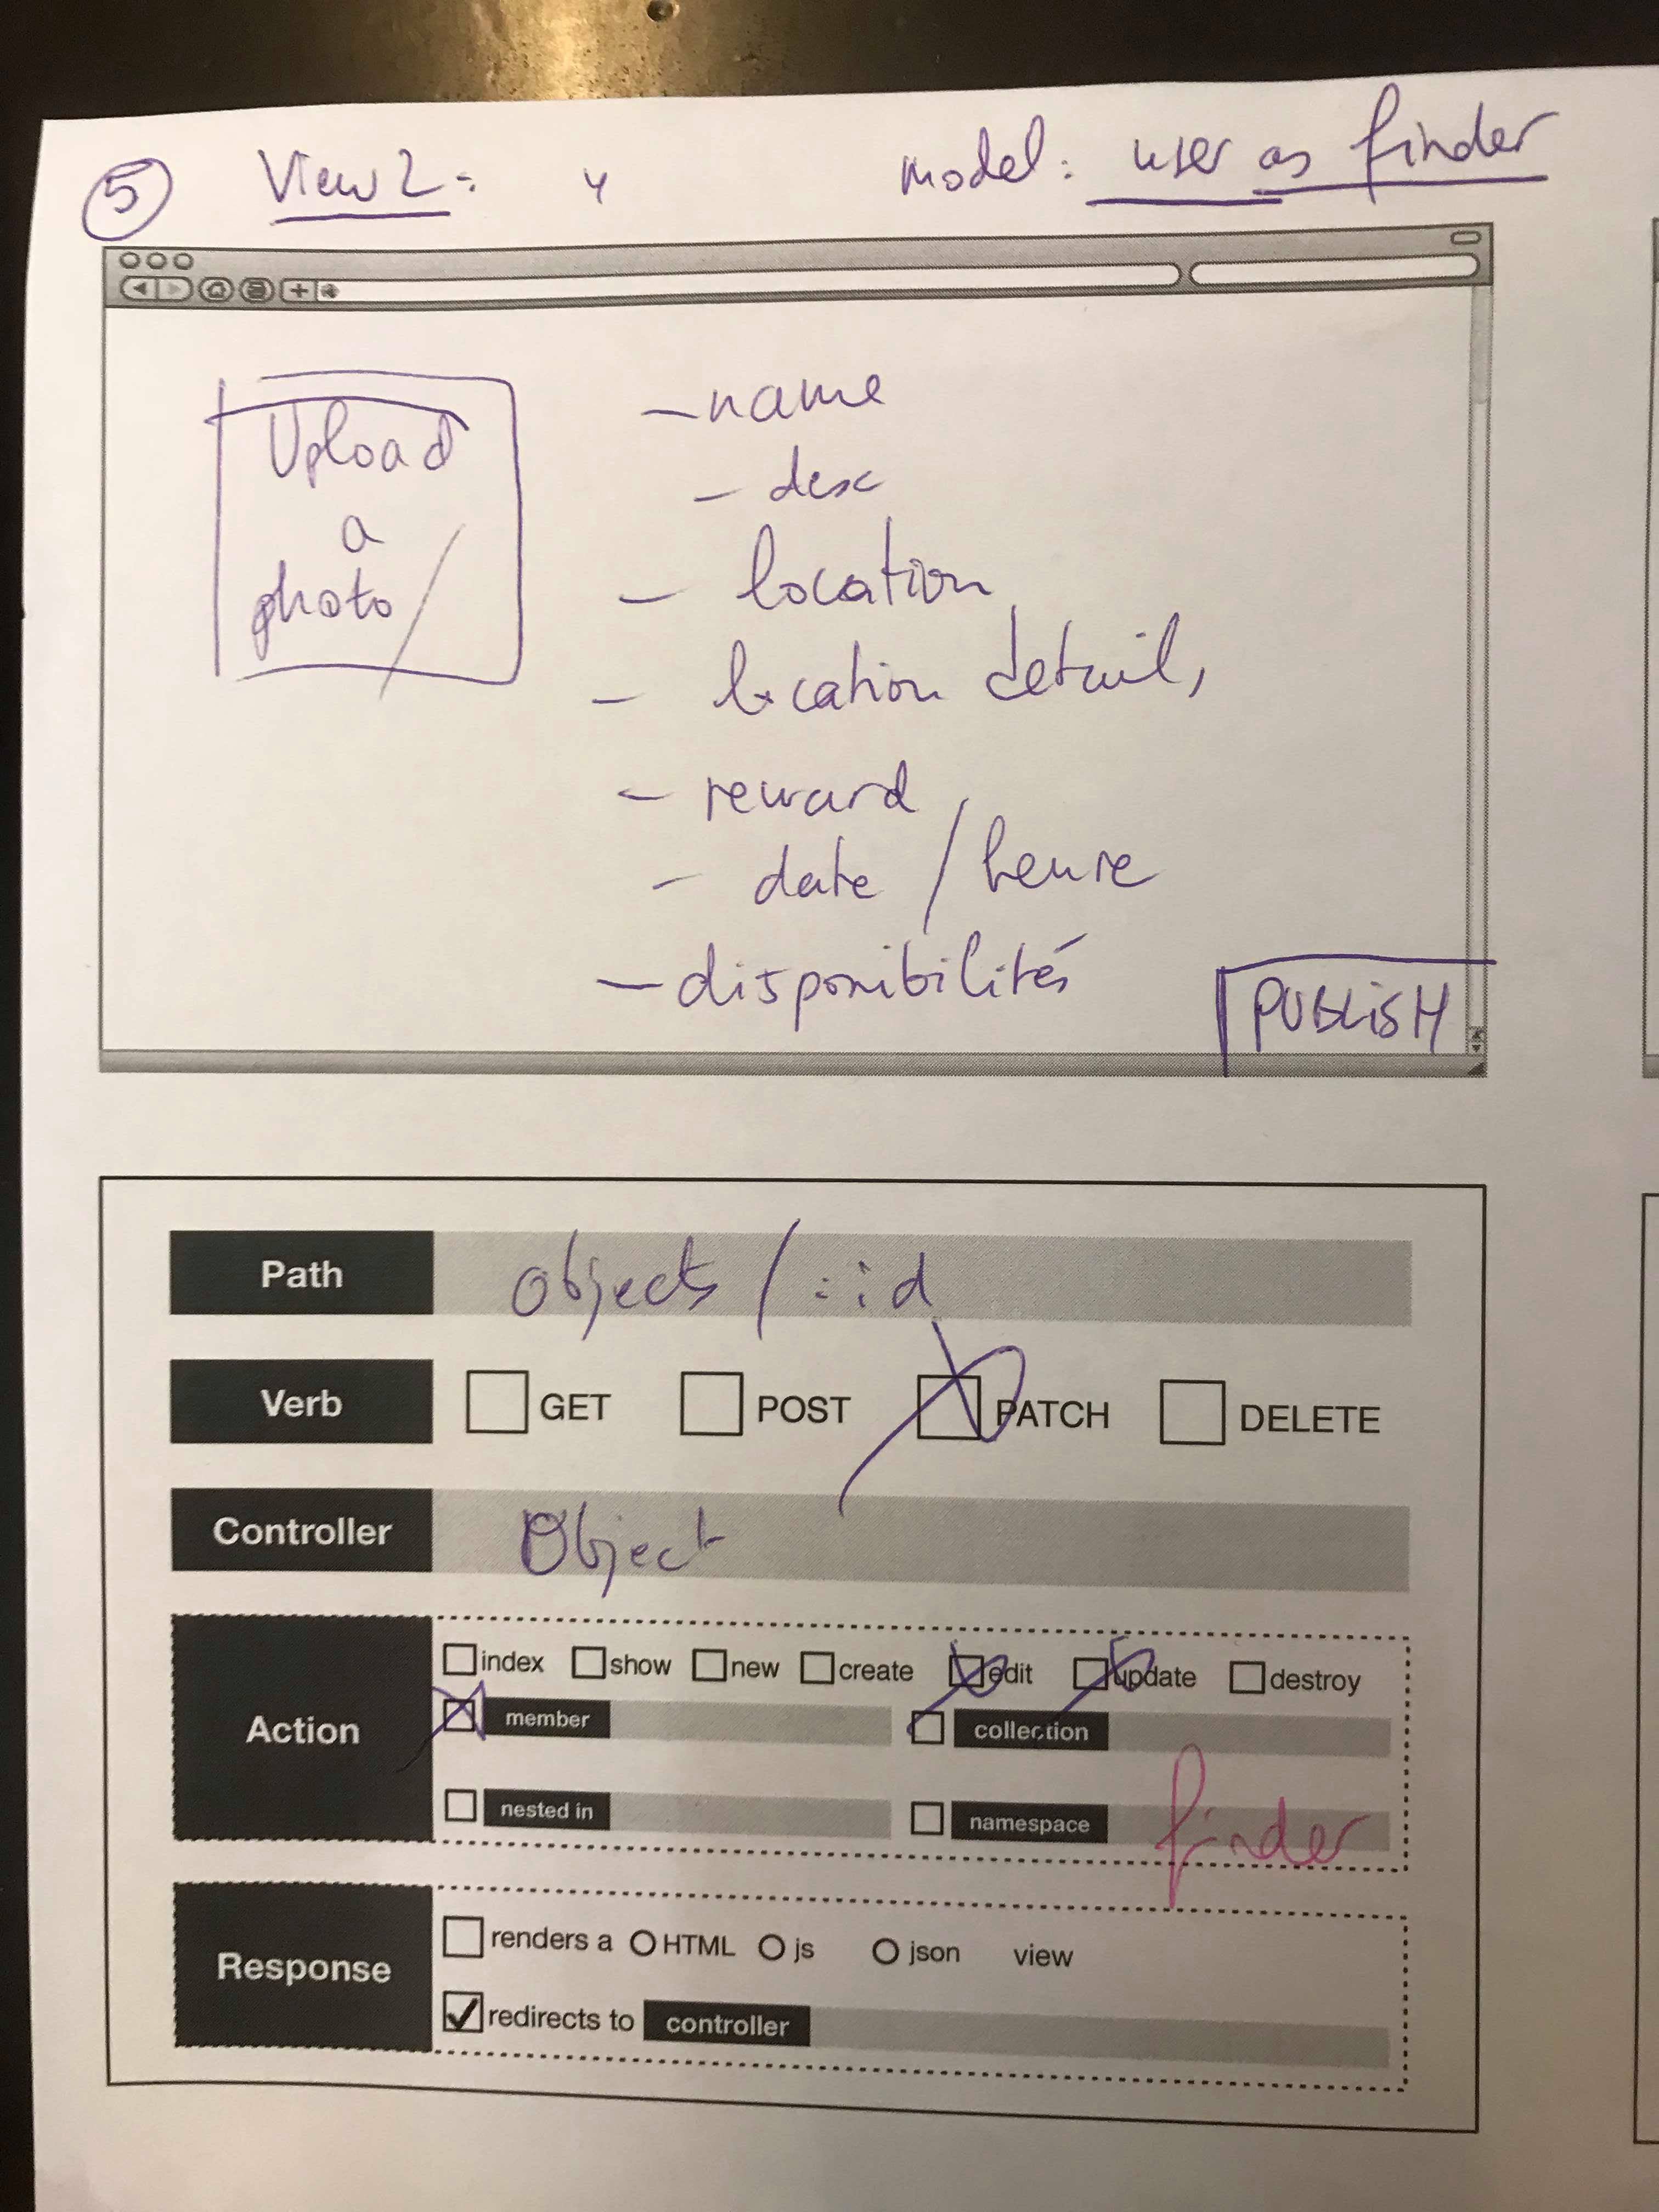 5 View 2: 4 model: user as finder
Upload
a
photo/
- name
- desc
- location
- location detail,
- reward
- date / heure
- disponibilités
PUBLISH
Path objects / :id
Verb GET POST PATCH DELETE
Controller Object
Action
index show new create edit update destroy
member collection
nested in namespace finder
Response
renders a HTML js json view
redirects to controller